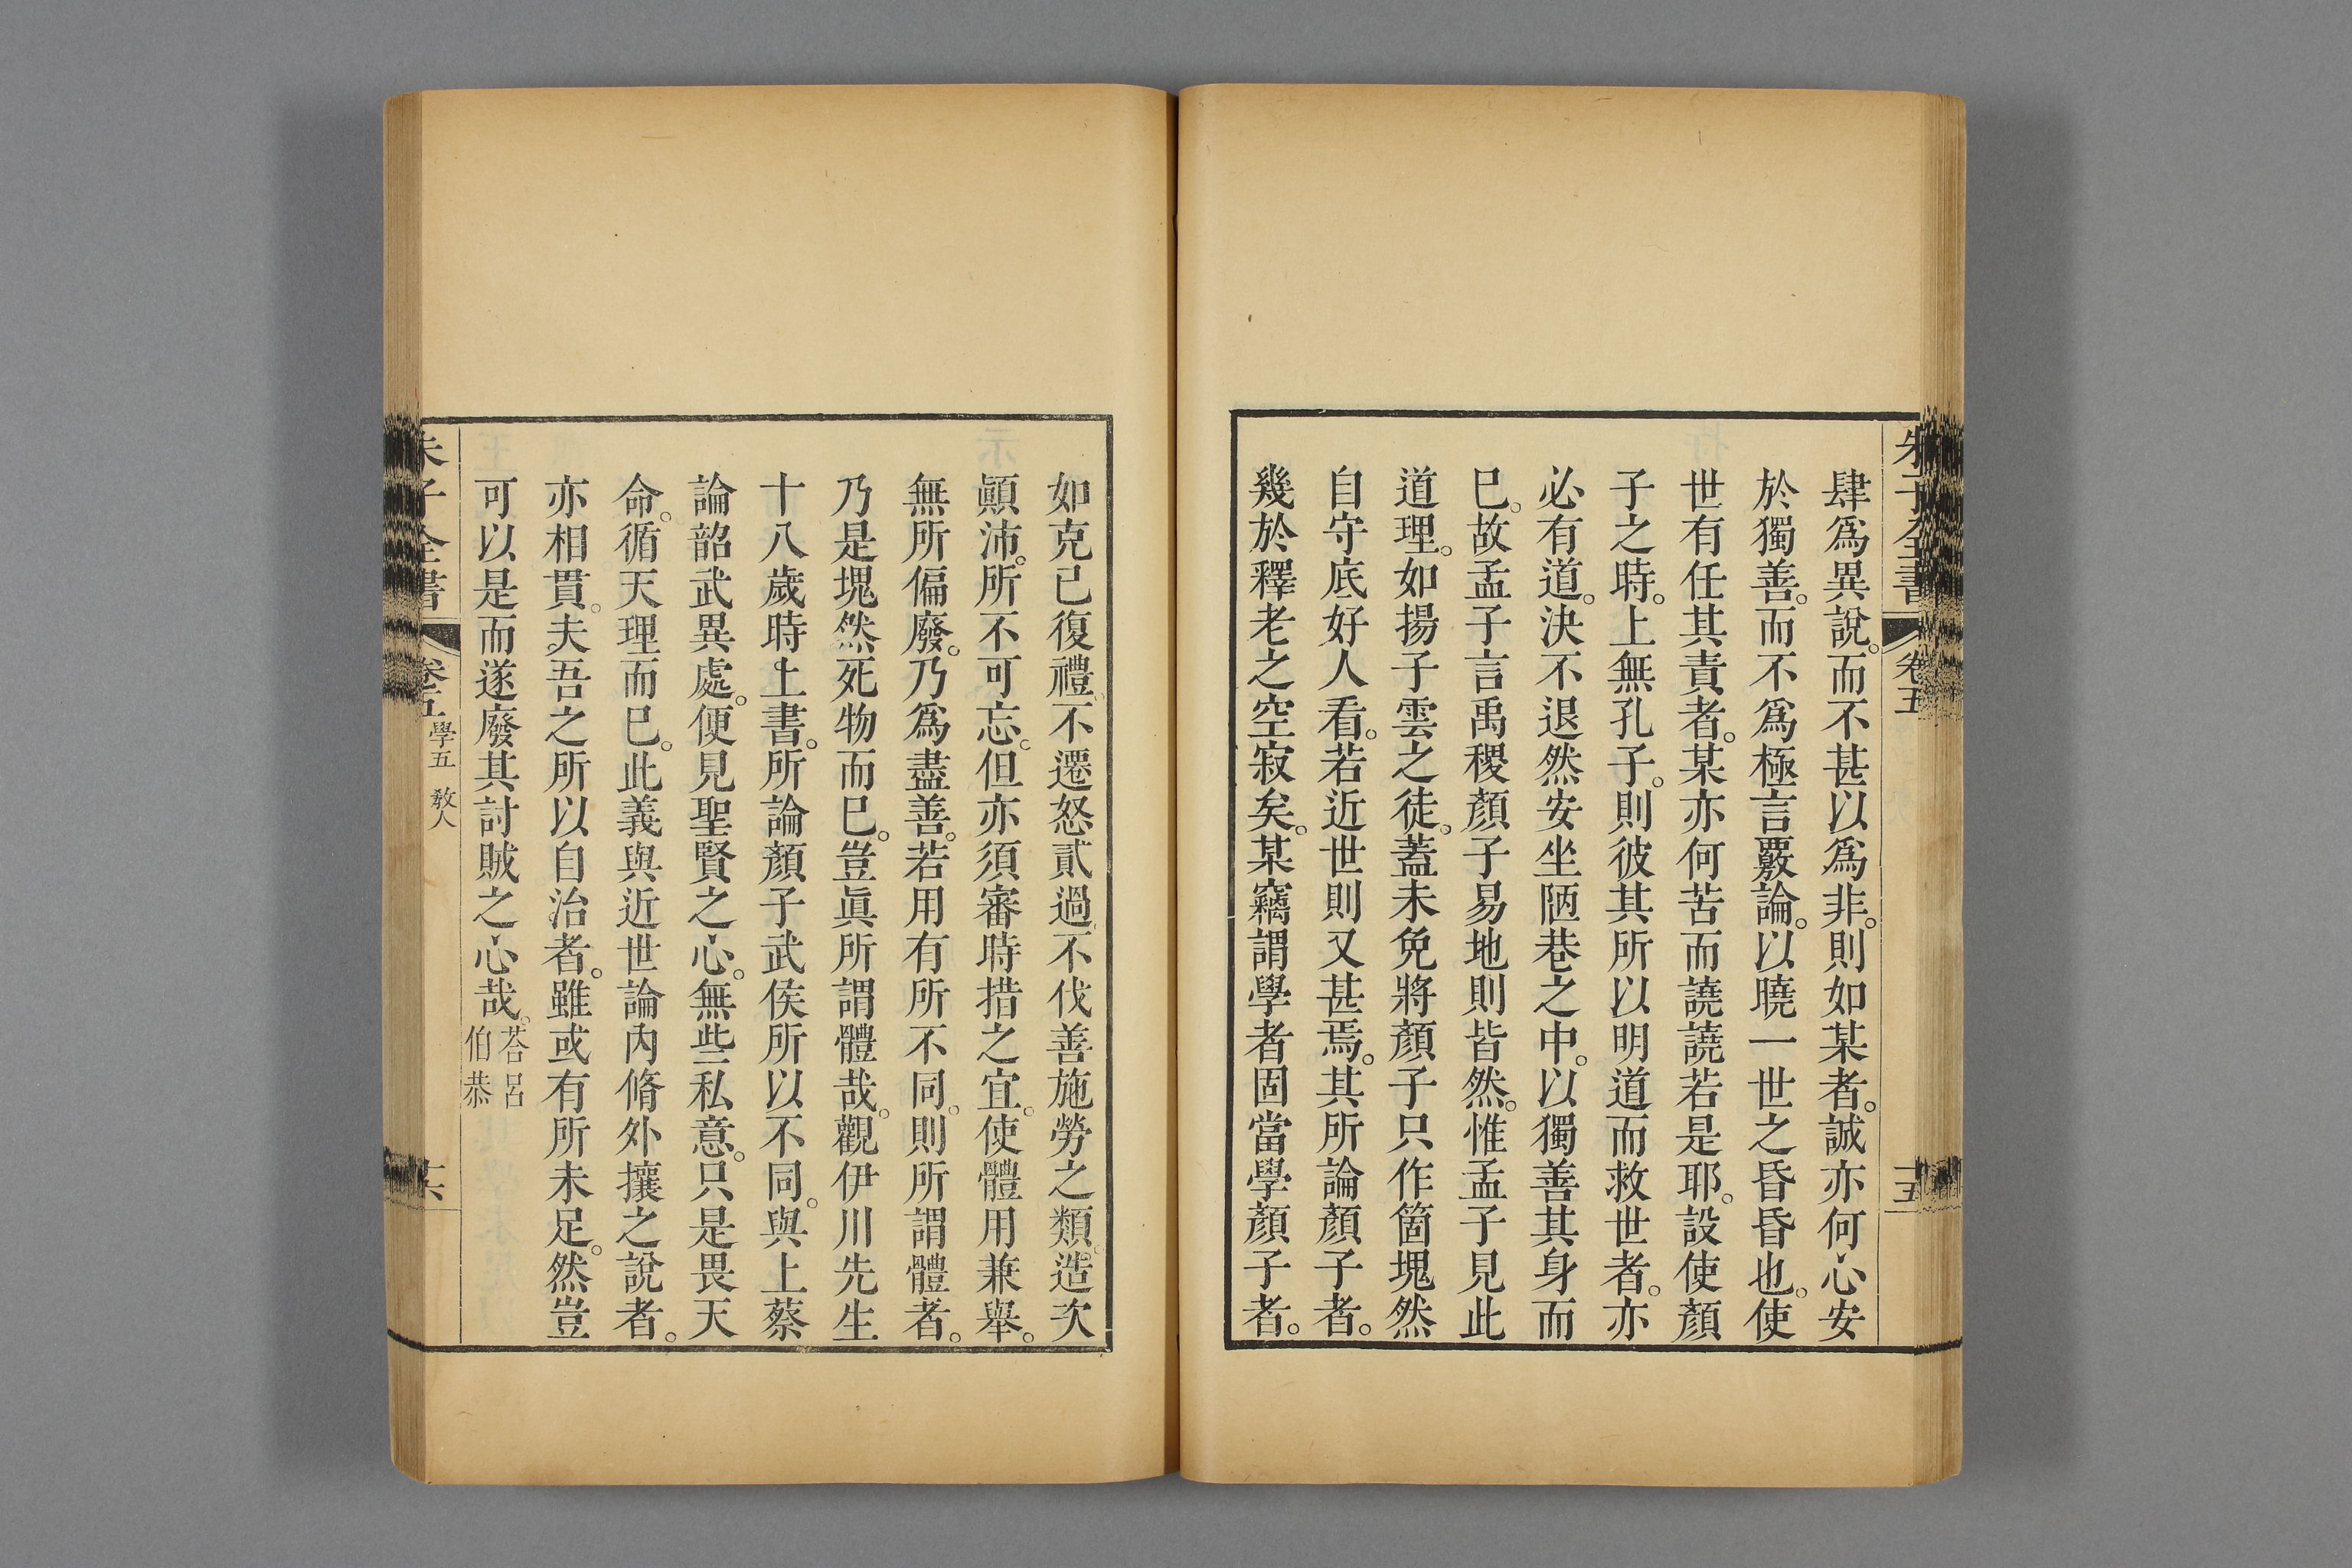 朱子全書 卷五 十五
肆爲異說。而不甚以爲非。則如某者。誠亦何心安
於獨善。而不爲極言覈論。以曉一世之昏昏也。使
世有任其責者。某亦何苦而譊譊若是耶。設使顏
子之時。上無孔子。則彼其所以明道而救世者。亦
必有道。決不退然安坐陋巷之中。以獨善其身而
已。故孟子言禹稷顏子易地則皆然。惟孟子見此
道理。如揚子雲之徒。蓋未免將顏子只作箇塊然
自守底好人看。若近世則又甚焉。其所論顏子者。
幾於釋老之空寂矣。某竊謂學者固當學顏子者。
如克已復禮。不遷怒貳過。不伐善施勞之類。造次
顚沛。所不可忘。但亦須審時措之宜。使體用兼舉。
無所偏廢。乃爲盡善。若用有所不同。則所謂體者。
乃是塊然死物而已。豈眞所謂體哉。觀伊川先生
十八歲時上書。所論顏子武侯所以不同。與上蔡
論韶武異處。便見聖賢之心。無些私意。只是畏天
命。循天理而已。此義與近世論內脩外攘之說者。
亦相貫。夫吾之所以自治者。雖或有所未足。然豈
可以是而遂廢其討賊之心哉。荅呂伯恭
朱子全書 卷五 學五 敎人 十六